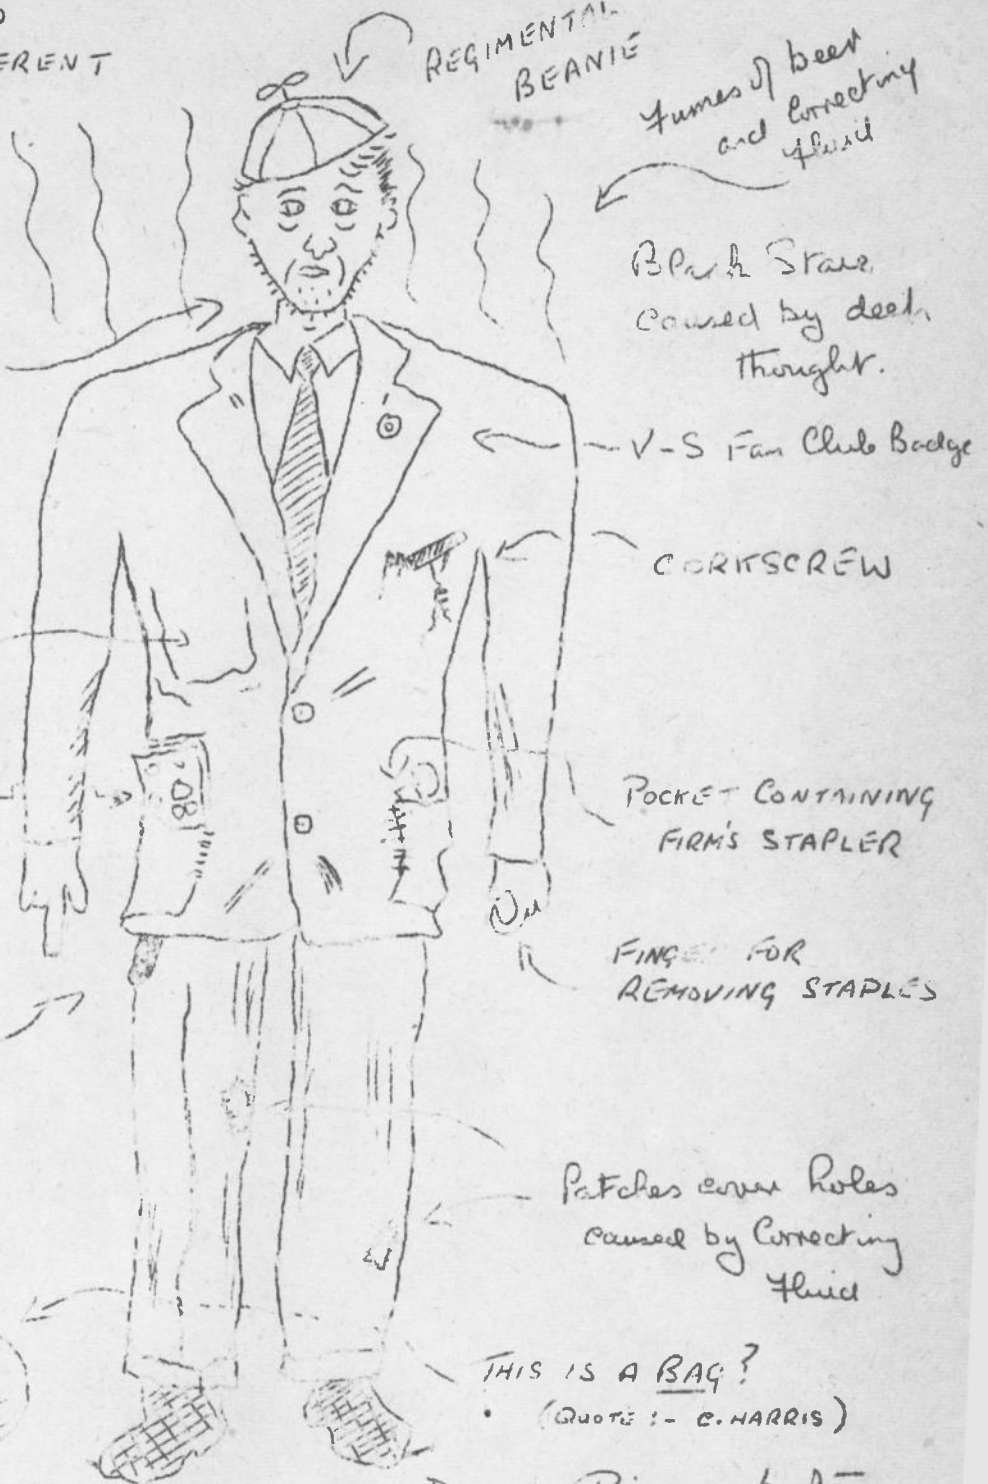 REGIMENTAL
BEANIE
Fumes of beer
and Correcting
Fluid
Blank Stare
caused by deep
thought.
V-S Fan Club Badge
CORKSCREW
POCKET CONTAINING
FIRM'S STAPLER
FINGER FOR
REMOVING STAPLES
Patches cover holes
caused by Correcting
Fluid
THIS IS A BAG?
(QUOTE :- C. HARRIS)